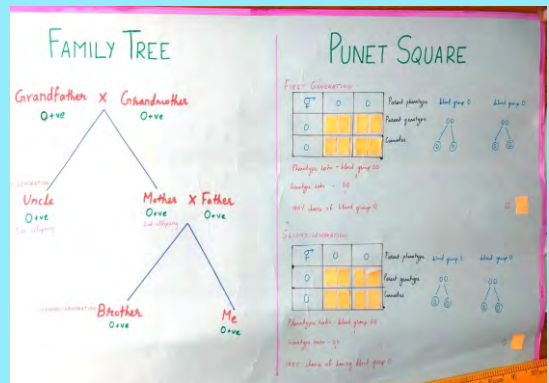 FAMILY TREE
Grandfather X Grandmother
O+ve O+ve
Uncle Mother X Father
O+ve O+ve O+ve
1st offspring 2nd offspring
Brother Me
O+ve O+ve
PUNET SQUARE
FIRST GENERATION
O O Parent phenotype blood group O blood group O
O Parent genotype OO OO
O Gametes O O O O
Phenotype ratio - blood group OO
Genotype ratio -
100% chance of blood group O
O
SECOND GENERATION
O O Parent phenotype blood group O blood group O
O Parent genotype OO OO
O Gametes O O O O
Phenotype ratio - blood group OO
Genotype ratio -
100% chance of having blood group O
O